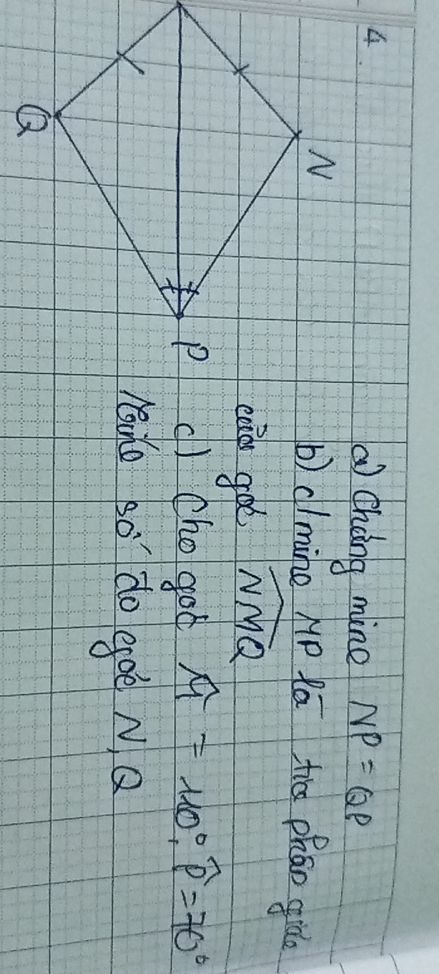 4
N
Q
P
a) Chứng minh NP = QP
b) c/minh MP là tia phân giác
của góc NMQ
c) Cho góc M̂ = 110°, P̂ = 70°
Tính số đo góc N, Q